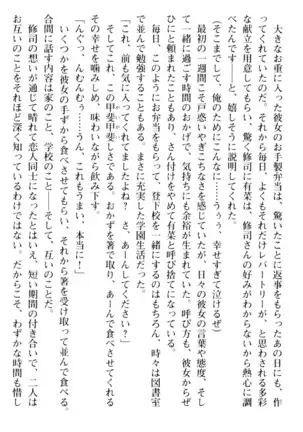 大きなお重に入った彼女のお手製弁当は、驚いたことに返事をもらったあの日にも作
ってくれていたのだ。それから毎日、よくもそれだけレパートリーが、と思われる多彩
な献立を用意してもらい、驚く修司に有菜は、修司さんの好みがわからないから熱心に調
べたんです！　と、嬉しそうに説明してくれた。
（そこまでして、俺のためにこんな……うぅっ、幸せすぎて泣けるぜ）
最初の一週間こそ戸惑いやぎこちなさを感じていたが、日々の彼女の言葉や態度、そし
て一緒に過ごす時間のおかげで、気持ちにも余裕が生まれていた。呼び方も、彼女からぜ
ひにと頼まれたこともあり、さん付けをやめて有菜と呼び捨てになっている。
毎日、このようにお弁当をもらって、登下校を一緒にするのはもちろん、時々は図書室
で並んで勉強する。まさに充実した学園生活だった。
「これ、前も気に入ってくれてましたよね？　さ、あーんしてください？」
そしてこれ。この甲斐甲斐しさである。おかずを箸で取り、あーんで食べさせてくれる
その幸せを噛みしめ、味わいながら飲み下す。
「んぐっ、んむんむっ……うん、これもうまい、本当に！」
いくつかを彼女の手ずから食べさせてもらい、それから箸を受け取って並んで食べる。
合間に話す内容は家のこと、学校のこと――そして、互いのこと。
修司の想いが通じて晴れて恋人同士になったとはいえ、短い期間の付き合いで、二人は
お互いのことをそれほど深く知っているわけではない。だからこそ、わずかな時間も惜し